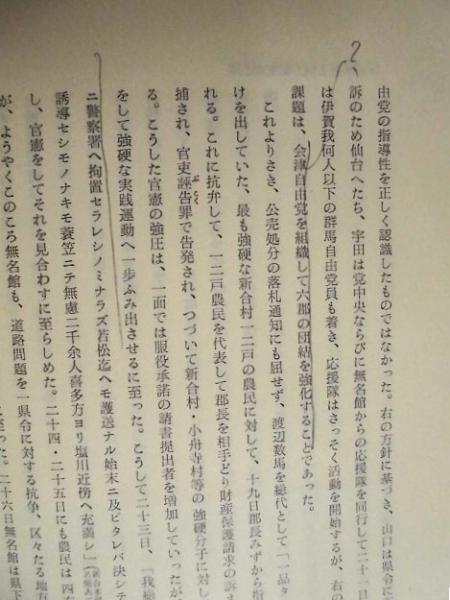 ？
由党の指導性を正しく認識したものではなかった。右の方針に基づき、山口は県令に
訴のため仙台へたち、宇田は党中央ならびに無名館からの応援隊を同行して二十一日
は伊賀我何人以下の群馬自由党員も着き、応援隊はさっそく活動を開始するが、右の
課題は、会津自由党を組織して六郡の団結を強化することであった。
これよりさき、公売処分の落札通知にも屈せず、渡辺数馬を総代として「一品タ
けを出していた、最も強硬な新合村一二戸の農民に対して、十九日郡長みずから指
れる。これに抗弁して、一二戸農民を代表して郡長を相手どり財産保護請求の訴え
捕され、官吏誣告罪で告発され、つづいて新合村・小舟寺村等の強硬分子に対し
る。こうした官憲の強圧は、一面では服役承諾の請書提出者を増加していったが
をして強硬な実践運動へ一歩ふみ出させるに至った。こうして二十三日、「我樋
ニ警察署へ拘置セラレシノミナラズ若松迄ヘモ護送ナル始末ニ及ビタレバ決シテ
誘導セシモノナキモ蓑笠ニテ無慮二千余人喜多方ヨリ塩川近傍ヘ充満シ」
し、官憲をしてそれを見合わすに至らしめた。二十四・二十五日にも農民は四方
が、ようやくこのころ無名館も、道路問題を一県令に対する抗争、区々たる地方
至った。二十六日無名館は県下